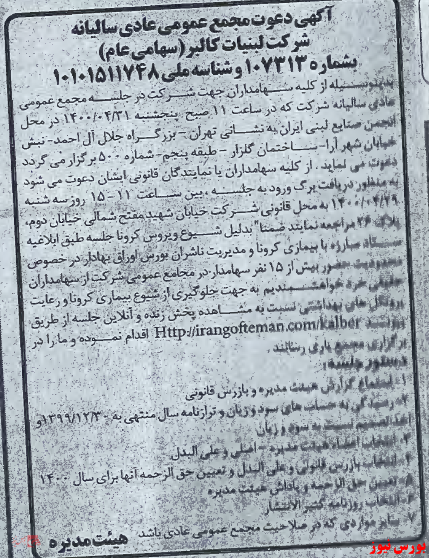 آگهی دعوت مجمع عمومی عادی سالیانه
شرکت لبنیات کالبر (سهامی عام)
بشماره ۱۰۷۳۱۳ و شناسه ملی ۱۰۱۰۱۵۱۱۷۴۸
بدینوسیله از کلیه سهامداران جهت شرکت در جلسه مجمع عمومی
عادی سالیانه شرکت که در ساعت ۱۱ صبح پنجشنبه ۱۴۰۰/۰۴/۳۱ در محل
انجمن صنایع لبنی ایران به نشانی تهران - بزرگراه جلال آل احمد- نبش
خیابان شهر آرا- ساختمان گلزار - طبقه پنجم - شماره ۵۰۰ برگزار می گردد
دعوت می نماید. از کلیه سهامداران یا نمایندگان قانونی ایشان دعوت می شود
به منظور دریافت برگ ورود به جلسه ، بین ساعت ۱۱ - ۱۵ روز سه شنبه
۱۴۰۰/۰۴/۲۹ به محل قانونی شرکت خیابان شهید مفتح شمالی خیابان دوم،
پلاک ۲۶ مراجعه نمایند ضمنا" بدلیل شیوع ویروس کرونا جلسه طبق ابلاغیه
ستاد مبارزه با بیماری کرونا و مدیریت ناشران بورس اوراق بهادار در خصوص
محدودیت حضور بیش از ۱۵ نفر سهامدار در مجامع عمومی شرکت از سهامداران
حقیقی خرد خواهشمندیم به جهت جلوگیری از شیوع بیماری کرونا و رعایت
پروتکل های بهداشتی نسبت به مشاهده پخش زنده و آنلاین جلسه از طریق
وبسایت Http://irangofteman.com/kalber اقدام نموده و ما را در
برگزاری مجمع یاری رسانند .
دستور جلسه :
۱- استماع گزارش هیئت مدیره و بازرس قانونی
۲- رسیدگی به حساب های سود و زیان و ترازنامه سال منتهی به ۱۳۹۹/۱۲/۳۰ و
اخذ تصمیم نسبت به سود و زیان
۳- انتخاب اعضاء هیئت مدیره - اصلی و علی البدل
۴- انتخاب بازرس قانونی و علی البدل و تعیین حق الزحمه آنها برای سال ۱۴۰۰
تعیین حق الزحمه و پاداش هیئت مدیره
انتخاب روزنامه کثیر الانتشار
سایر مواردی که در صلاحیت مجمع عمومی عادی باشد
هیئت مدیره
بورس نیوز